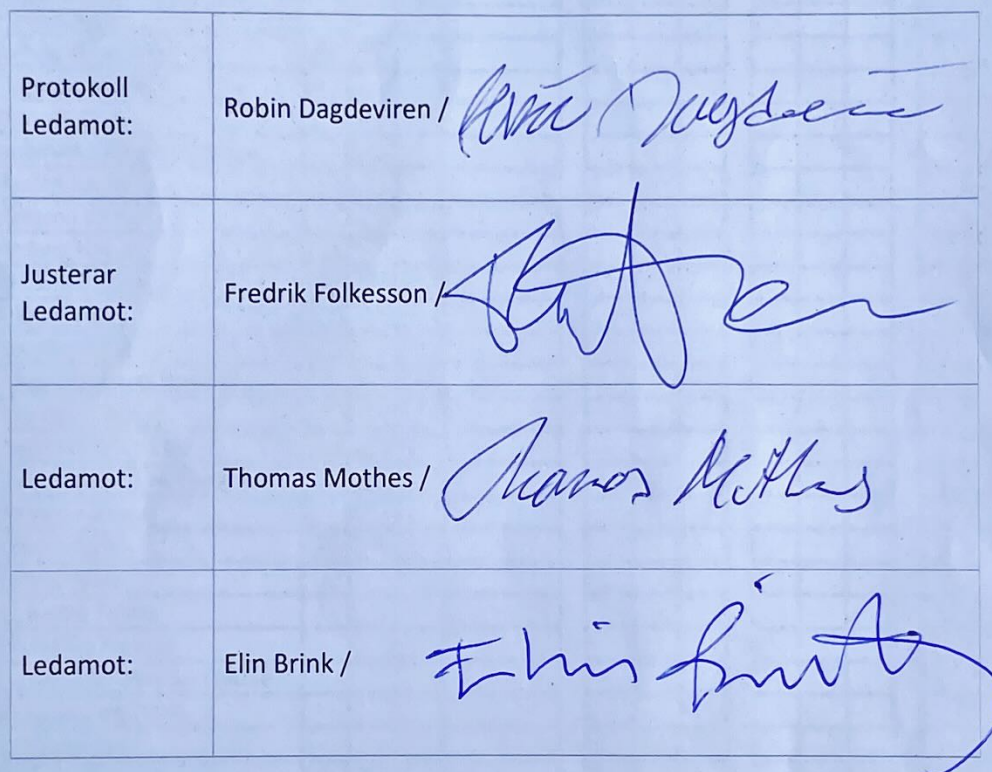 Protokoll
Ledamot:
Robin Dagdeviren / Robin Dagdeviren
Justerar
Ledamot:
Fredrik Folkesson /
Ledamot:
Thomas Mothes / Thomas Mothes
Ledamot:
Elin Brink / Elin Brink